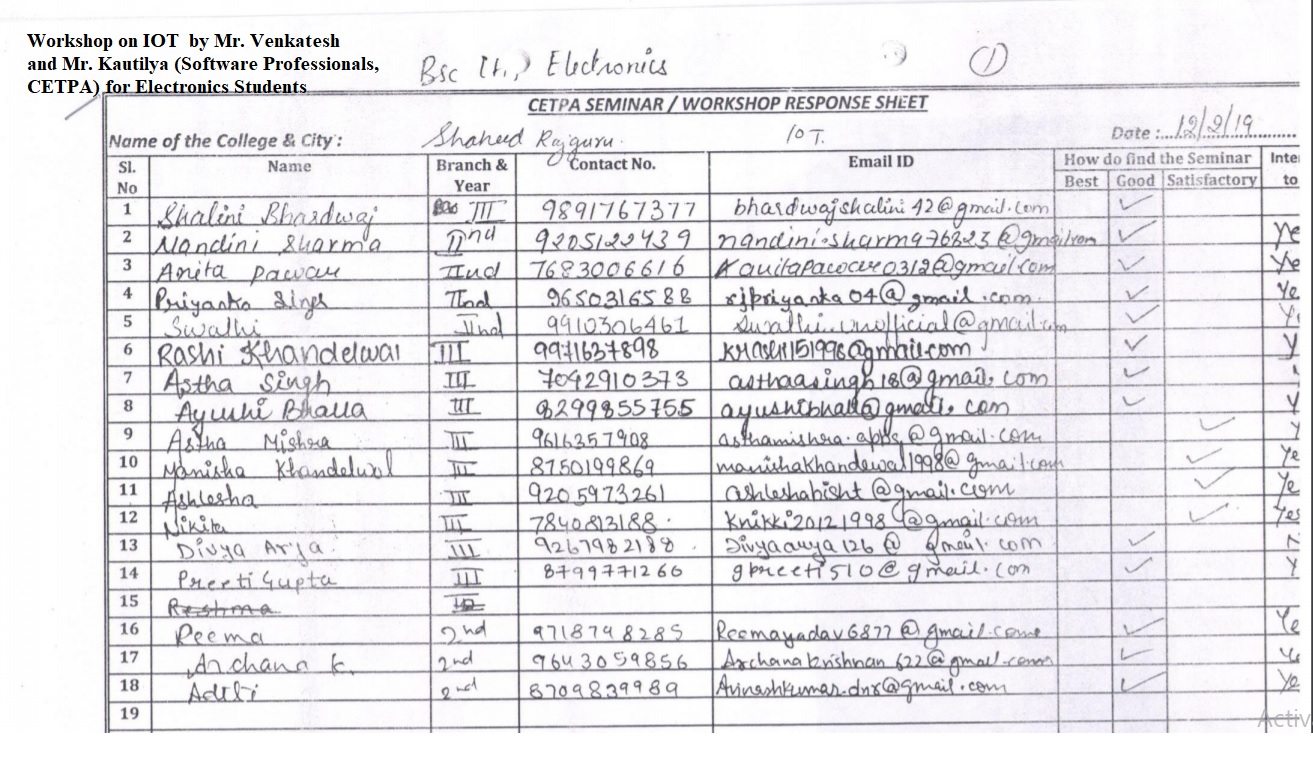 Workshop on IOT by Mr. Venkatesh
and Mr. Kautilya (Software Professionals,
CETPA) for Electronics Students
Bsc (H.) Electronics
1
CETPA SEMINAR / WORKSHOP RESPONSE SHEET
Name of the College & City : Shaheed Rajguru. IOT. Date : 12/2/19
Sl. No Name Branch & Year Contact No. Email ID How do find the Seminar Inte to
Best Good Satisfactory
1 Shalini Bhardwaj III 9891767377 bhardwajshalini42@gmail.com ✓
2 Nandini Sharma IInd 9205122439 nandini.sharma76823@gmail.com ✓ Ye
3 Anita Pawar IInd 7683006616 anitapawar0312@gmail.com ✓ Ye
4 Priyanka Singh IInd 9650316588 rjpriyanka04@gmail.com. ✓ Ye
5 Swathi IInd 9910306461 ✓ Y
6 Rashi Khandelwal III 9971637898 ✓ Y
7 Astha Singh III 7042910373 asthaasingh18@gmail.com ✓
8 Ayushi Bhalla III 8299855755 ✓ Y
9 Astha Mishra III 9616357908 asthamishra.apps@gmail.com ✓ Y
10 Manisha Khandelwal III 8750199869 manishakhandewal1998@gmail.com ✓ Ye
11 Ashlesha III 9205973261 ashleshabisht@gmail.com ✓ Ye
12 Nikita III 7840813188. knikki20121998@gmail.com ✓ Yes
13 Divya Arya. III 9267982188. Divyaarya126@gmail.com ✓
14 Preeti Gupta III 8799771260 gpreeti510@gmail.com ✓ Y
15 Reshma
16 Reema 2nd 9718798285 Reemayadav6877@gmail.com ✓ Ye
17 Archana K. 2nd 9643059856 Archanakrishnan622@gmail.com ✓ Ye
18 Aditi 2nd 8709839989 Avineshkumar.dnr@gmail.com ✓ Ye
19
Activ